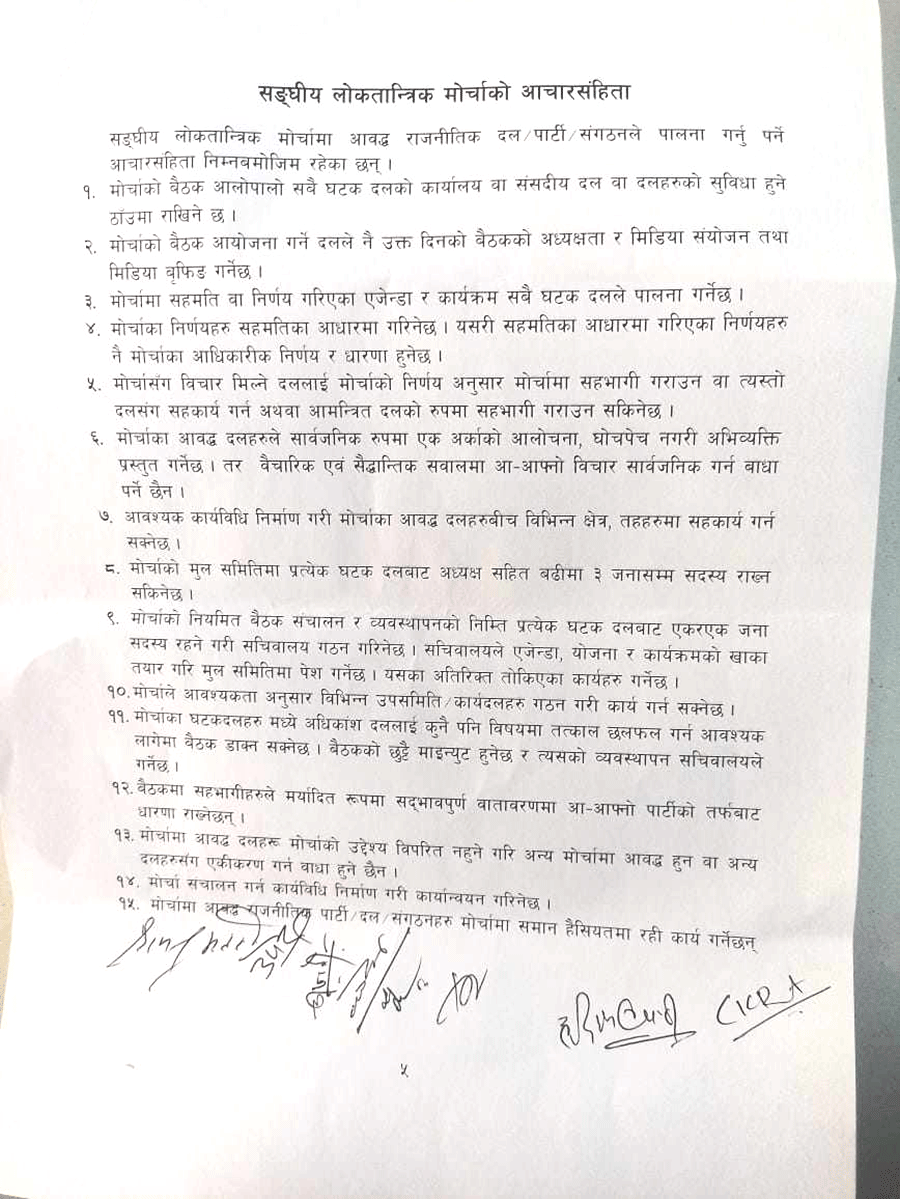 सङ्घीय लोकतान्त्रिक मोर्चाको आचारसंहिता
सङ्घीय लोकतान्त्रिक मोर्चामा आवद्ध राजनीतिक दल/पार्टी/संगठनले पालना गर्नु पर्ने
आचारसंहिता निम्नबमोजिम रहेका छन् ।
१. मोर्चाको बैठक आलोपालो सबै घटक दलको कार्यालय वा संसदीय दल वा दलहरुको सुविधा हुने
ठाँउमा राखिने छ ।
२. मोर्चाको बैठक आयोजना गर्ने दलले नै उक्त दिनको बैठकको अध्यक्षता र मिडिया संयोजन तथा
मिडिया वृफिङ गर्नेछ ।
३. मोर्चामा सहमति वा निर्णय गरिएका एजेन्डा र कार्यक्रम सबै घटक दलले पालना गर्नेछ ।
४. मोर्चाका निर्णयहरु सहमतिका आधारमा गरिनेछ । यसरी सहमतिका आधारमा गरिएका निर्णयहरु
नै मोर्चाका आधिकारीक निर्णय र धारणा हुनेछ ।
५. मोर्चासँग विचार मिल्ने दललाई मोर्चाको निर्णय अनुसार मोर्चामा सहभागी गराउन वा त्यस्तो
दलसंग सहकार्य गर्न अथवा आमन्त्रित दलको रुपमा सहभागी गराउन सकिनेछ ।
६. मोर्चाका आवद्ध दलहरुले सार्वजनिक रुपमा एक अर्काको आलोचना, घोचपेच नगरी अभिव्यक्ति
प्रस्तुत गर्नेछ । तर वैचारिक एवं सैद्धान्तिक सवालमा आ-आफ्नो विचार सार्वजनिक गर्न बाधा
पर्ने छैन ।
७. आवश्यक कार्यविधि निर्माण गरी मोर्चाका आवद्ध दलहरुबीच विभिन्न क्षेत्र, तहहरुमा सहकार्य गर्न
सक्नेछ ।
८. मोर्चाको मुल समितिमा प्रत्येक घटक दलबाट अध्यक्ष सहित बढीमा ३ जनासम्म सदस्य राख्न
सकिनेछ ।
९. मोर्चाको नियमित बैठक संचालन र व्यवस्थापनको निम्ति प्रत्येक घटक दलबाट एकरएक जना
सदस्य रहने गरी सचिवालय गठन गरिनेछ । सचिवालयले एजेन्डा, योजना र कार्यक्रमको खाका
तयार गरि मुल समितिमा पेश गर्नेछ । यसका अतिरिक्त तोकिएका कार्यहरु गर्नेछ ।
१०. मोर्चाले आवश्यकता अनुसार विभिन्न उपसमिति/कार्यदलहरु गठन गरी कार्य गर्न सक्नेछ ।
११. मोर्चाका घटकदलहरु मध्ये अधिकांश दललाई कुनै पनि विषयमा तत्काल छलफल गर्न आवश्यक
लागेमा बैठक डाक्न सक्नेछ । बैठकको छुट्टै माइन्युट हुनेछ र त्यसको व्यवस्थापन सचिवालयले
गर्नेछ ।
१२. बैठकमा सहभागीहरुले मर्यादित रूपमा सद्भावपुर्ण वातावरणमा आ-आफ्नो पार्टीको तर्फबाट
धारणा राख्नेछन् ।
१३. मोर्चामा आवद्ध दलहरू मोर्चाको उद्देश्य विपरित नहुने गरि अन्य मोर्चामा आवद्ध हुन वा अन्य
दलहरुसंग एकीकरण गर्न वाधा हुने छैन ।
१४. मोर्चा संचालन गर्न कार्यविधि निर्माण गरी कार्यान्वयन गरिनेछ ।
१५. मोर्चामा आवद्ध राजनीतिक पार्टी/दल/संगठनहरु मोर्चामा समान हैसियतमा रही कार्य गर्नेछन्
५